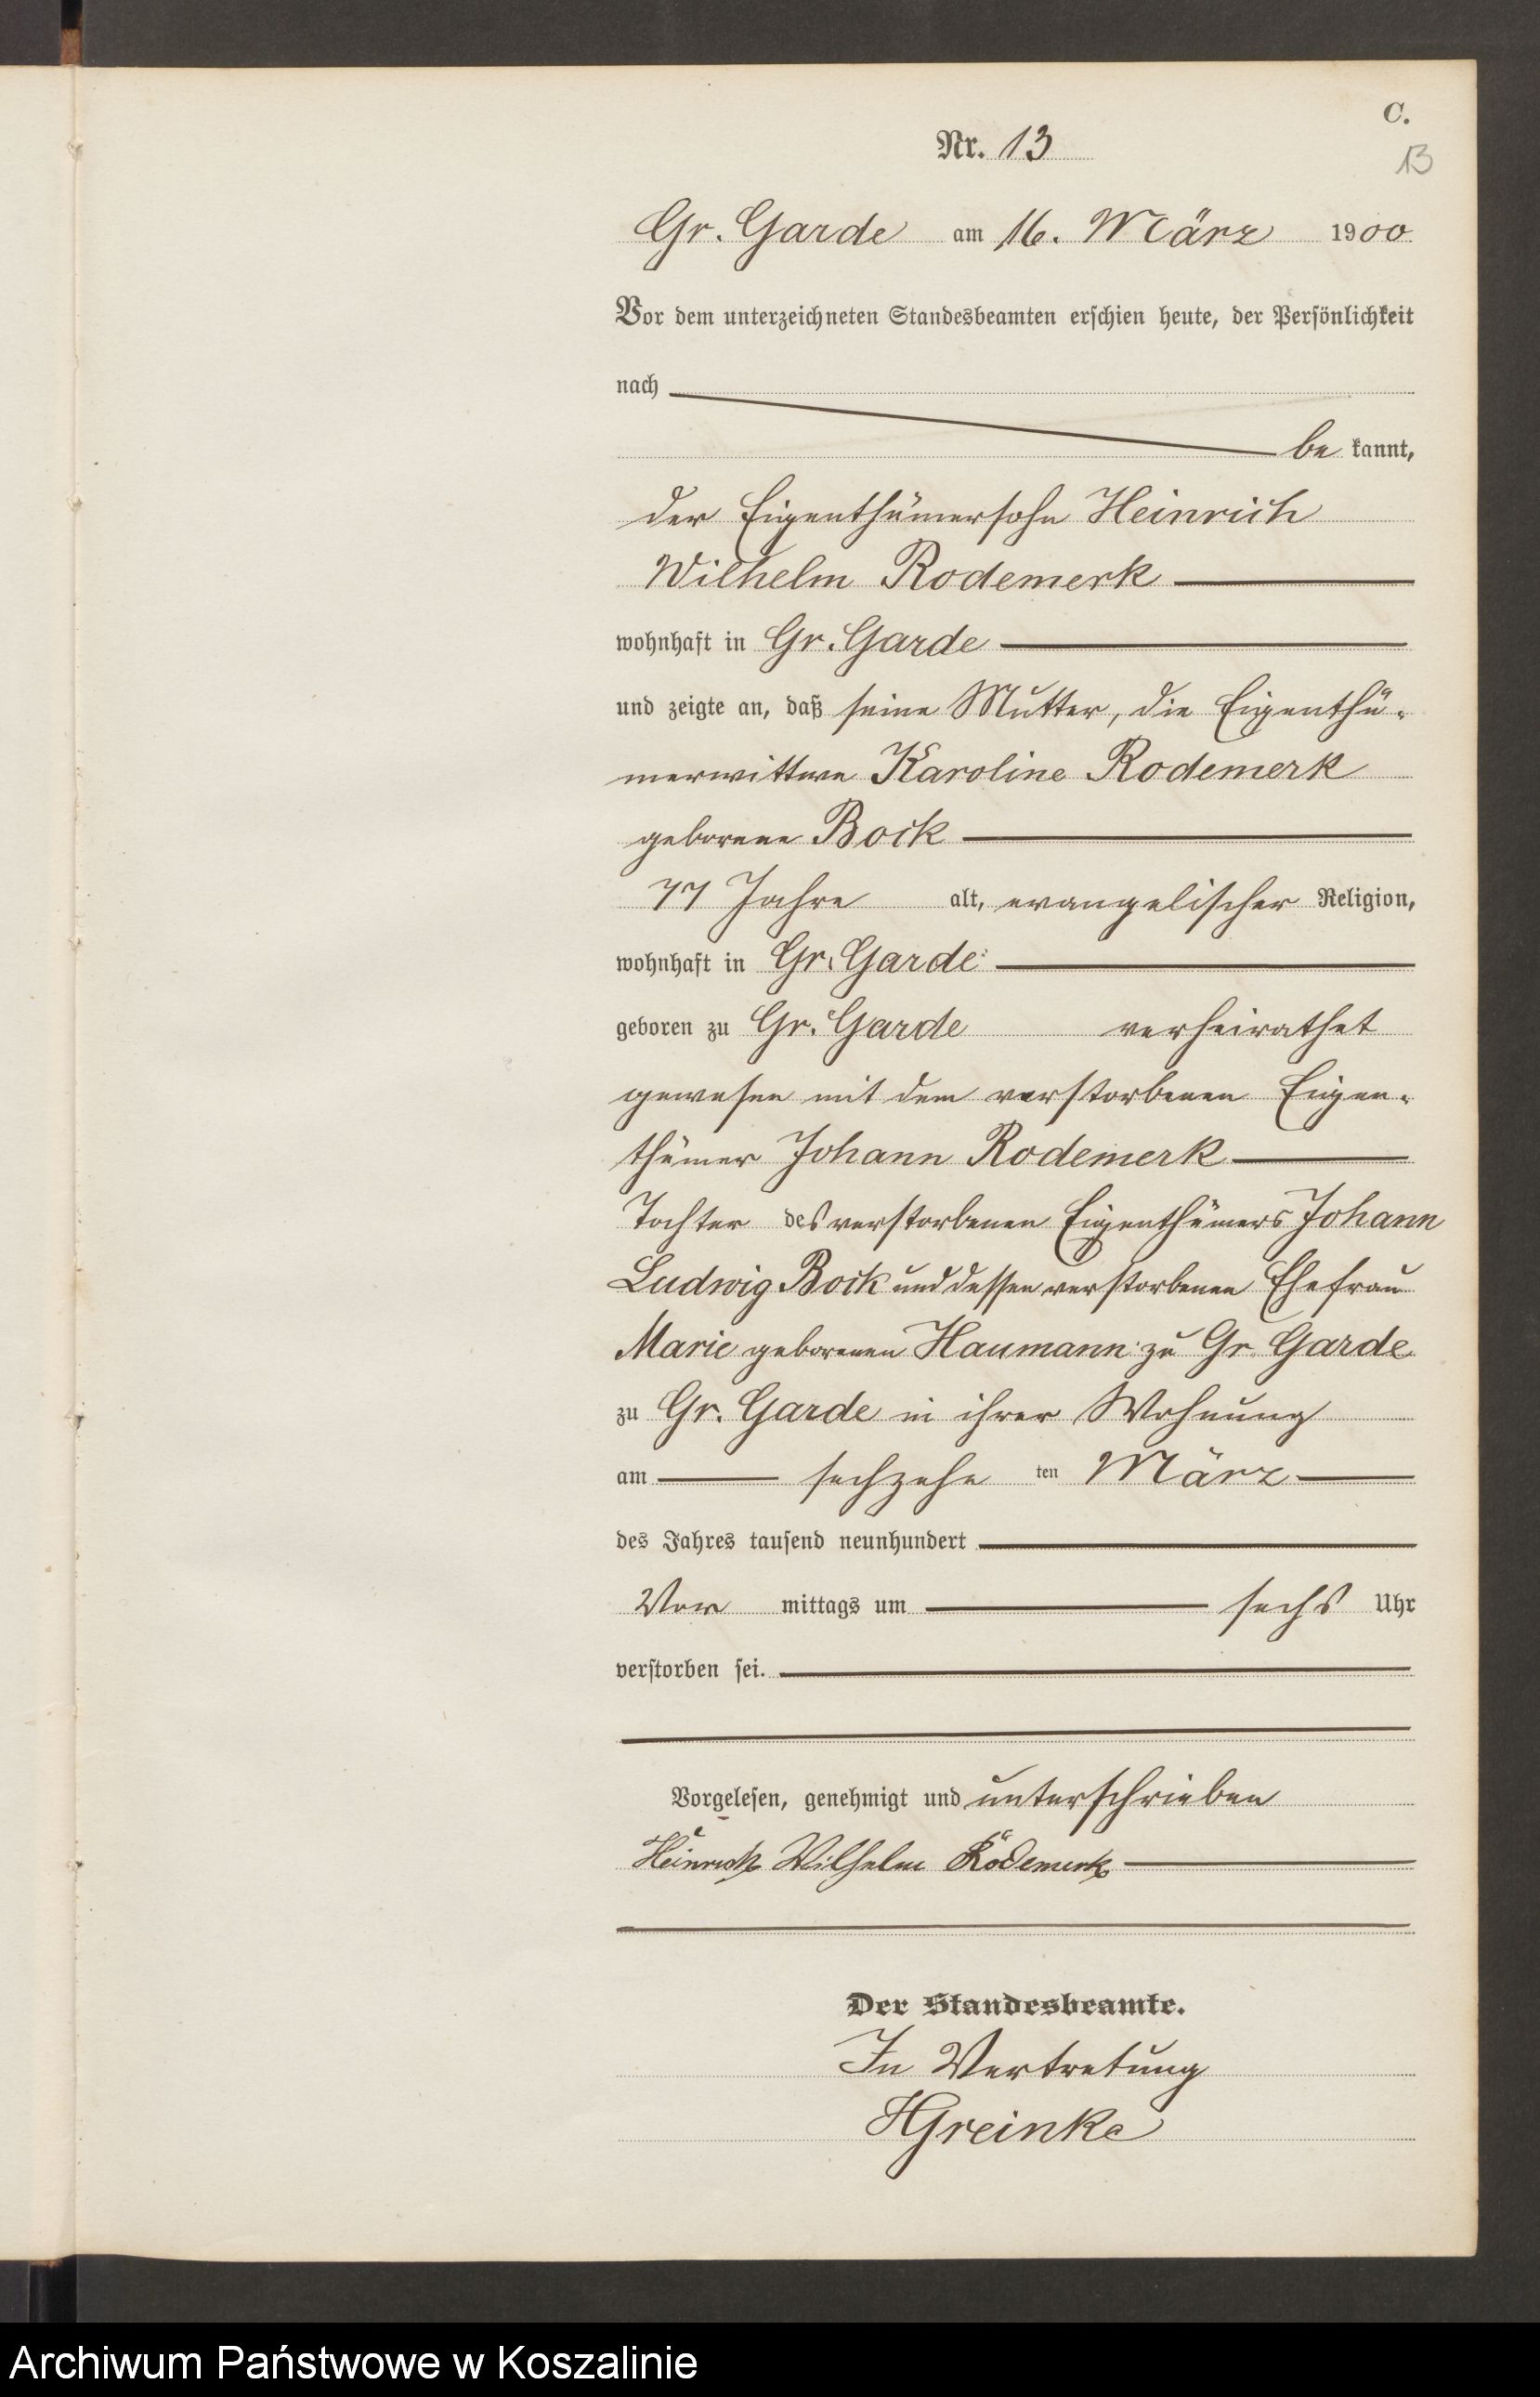 C.
Nr. 13
13
Gr. Garde am 16. März 1900
Vor dem unterzeichneten Standesbeamten erschien heute, der Persönlichkeit
nach
be kannt,
der Eigenthümersohn Heinrich
Wilhelm Rodemerk
wohnhaft in Gr. Garde
und zeigte an, daß seine Mutter, die Eigenthü-
merwittwe Karoline Rodemerk
geborene Bock
77 Jahre alt, evangelischer Religion,
wohnhaft in Gr. Garde
geboren zu Gr. Garde verheirathet
gewesen mit dem verstorbenen Eigen-
thümer Johann Rodemerk
Tochter des verstorbenen Eigenthümers Johann
Ludwig Bock und dessen verstorbenen Ehefrau
Marie geborenen Haumann zu Gr. Garde
zu Gr. Garde in ihrer Wohnung
am sechzehn ten März
des Jahres tausend neunhundert
Vor mittags um sechs Uhr
verstorben sei.
Vorgelesen, genehmigt und unterschrieben
Heinrich Wilhelm Rodemerk
Der Standesbeamte.
In Vertretung
HGreinke
Archiwum Państwowe w Koszalinie